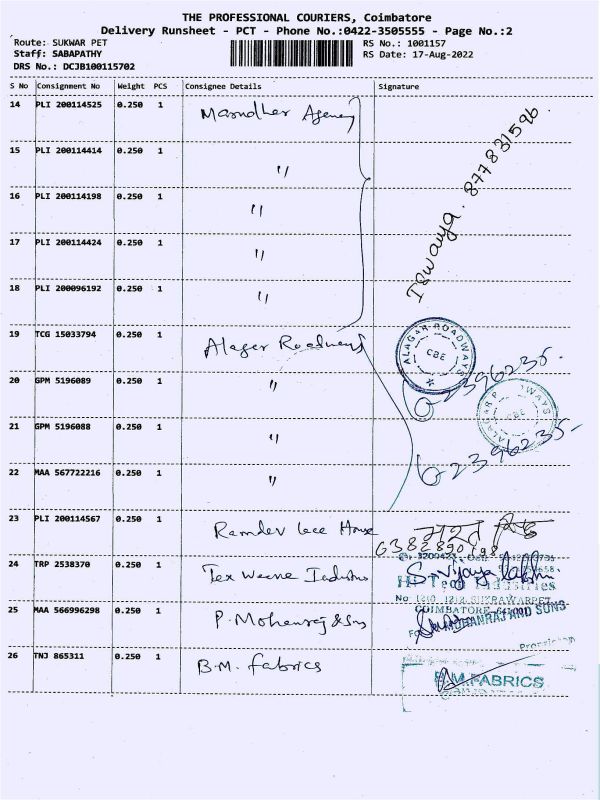 THE PROFESSIONAL COURIERS, Coimbatore
Delivery Runsheet - PCT - Phone No.:0422-3505555 - Page No.:2
Route: SUKWAR PET RS No.: 1001157
Staff: SABAPATHY RS Date: 17-Aug-2022
DRS No.: DCJB100115702
S No Consignment No Weight PCS Consignee Details Signature
14 PLI 200114525 0.250 1 Marudher Agency
15 PLI 200114414 0.250 1 "
16 PLI 200114198 0.250 1 "
17 PLI 200114424 0.250 1 "
18 PLI 200096192 0.250 1 "
Iswarya. 877831596
19 TCG 15033794 0.250 1 Alager Roadways
ALAGAR ROADWAYS
CBE
20 GPM 5196089 0.250 1 "
2396235.
21 GPM 5196088 0.250 1 "
CBE
22 MAA 567722216 0.250 1 "
2396235-
23 PLI 200114567 0.250 1 Ramdev lace House
6382890198
24 TRP 2538370 0.250 1 Tex Weene Industries
S. Vijaya lakshmi
Industries
No 1210, 1212, SUKRAWARPET
COIMBATORE-641001
25 MAA 566996298 0.250 1 P. Mohanraj & Sons
MOHANRAJ AND SONS
Proprietor
26 TNJ 865311 0.250 1 B.M. fabrics
B.M.FABRICS